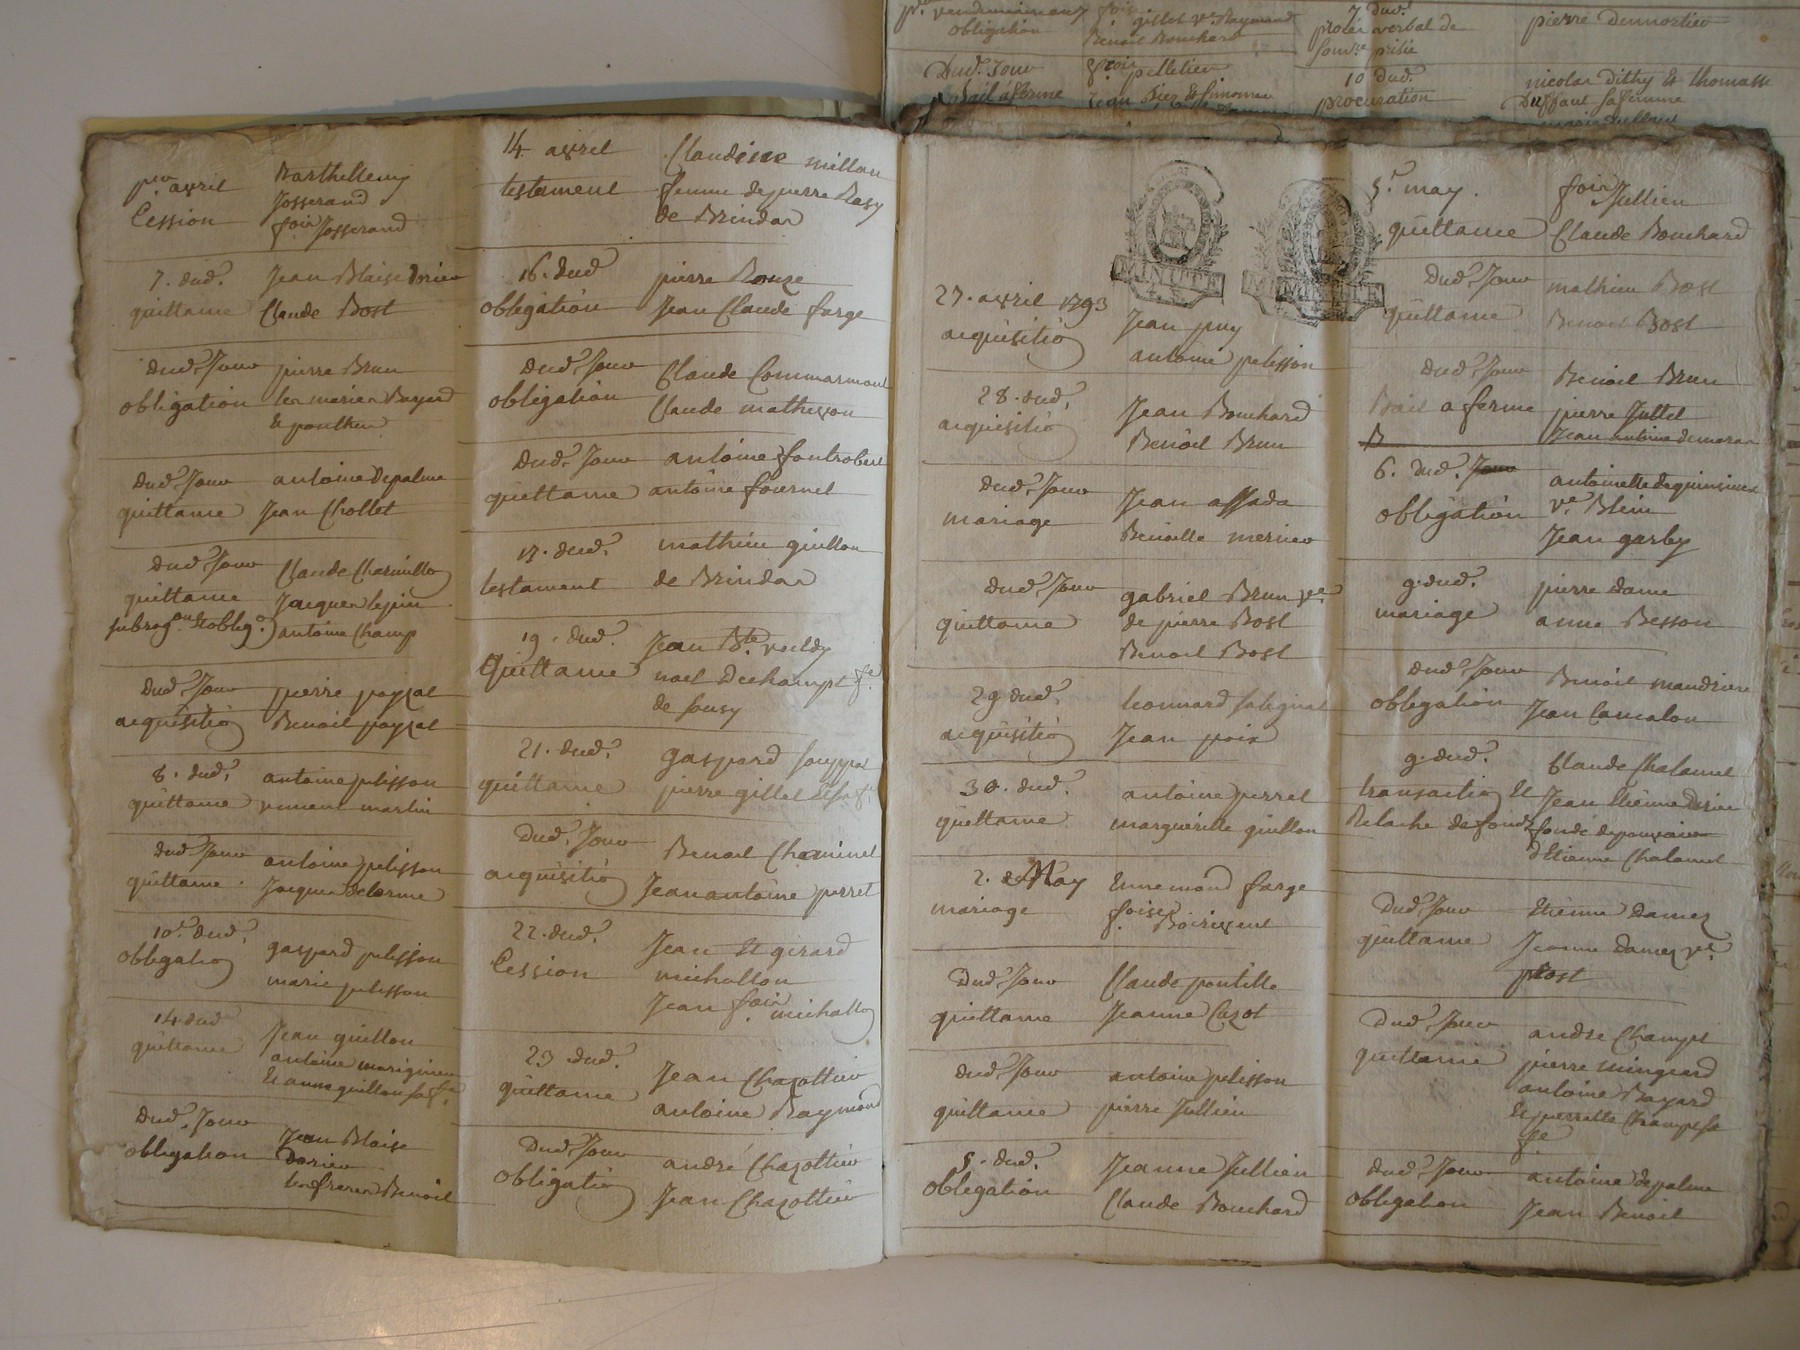 obligation
Benoit Bouchard
7 dud.
procès verbal de
pierre dumortier
Dud. Jour
pelletier
Bail à ferme
10 dud.
procuration
nicolas dithy et thomasse
per avril
Cession
Barthellemy
Josserand
fois Josserand
7. dud.
quittance
Jean Blaise Dorier
Claude Bost
dud. Jour
obligation
pierre Brun
les mariés Bayard
et ponthus
dud. Jour
quittance
antoine depalme
Jean Chollet
dud. Jour
quittance
subrogon et obligon
Claude Charmillo
Jacques lepin
antoine Champ
dud. Jour
acquisitio
pierre payzat
Benoit payzat
8. dud.
quittance
antoine pelisson
vincent martin
dud. Jour
quittance
antoine pelisson
Jacques delorme
10. dud.
obligatio
gaspard pelisson
marie pelisson
14 dud
quittance
Jean guillon
antoine marignier
et anne guillon sa fe.
Dud. Jour
obligation
Jean Blaise
Dorier
les freres Benoit
14 avril
testament
Claudine millan
femme de pierre Rasy
de Brindas
16. dud
obligation
pierre Rouze
Jean Claude farge
Dud. Jour
obligation
Claude Commarmont
Claude mathevon
Dud. Jour
quittance
antoine fontrobert
antoine fournel
17. dud.
testament
mathieu guillon
de Brindas
19. dud.
Quittance
Jean Bte.
noel Dechampt fe.
de soucy
21. dud.
quittance
gaspard souppat
pierre gillet et sa fe.
Dud. Jour
acquisitio
Benoit Cheminel
Jean antoine perret
22. dud.
Cession
Jean St girard
michallon
Jean fois. michallo
23 dud.
quittance
Jean Chazottier
antoine Raymond
Dud. Jour
obligatio
andré Chazottier
Jean Chazottier
MINUTE
27. avril 1793
acquisitio
Jean puy
antoine pelisson
28. dud.
acquisitio
Jean Bouchard
Benoit Brun
dud. Jour
mariage
Jean assada
Benoitte mercier
Dud. Jour
quittance
gabriel Brun ve.
de pierre Bost
Benoit Bost
29 dud.
acquisitio
leonnard salignat
Jean poix
30. dud.
quittance
antoine perret
margueritte guillon
2. May
mariage
Ennemond farge
foise Boirivent
Dud. Jour
quittance
Claude pontille
Jeanne Cazot
dud. Jour
quittance
antoine pelisson
pierre Jullien
5. dud.
obligation
Jeanne Jullien
Claude Bouchard
5. may.
quittance
fois Jullien
Claude Bouchard
Dud. Jour
quittance
mathieu Bost
Benoit Bost
dud. Jour
Bail a ferme
B
Benoit Brun
pierre Juttet
Jean antoine demoran
6. Dud. Jour
obligation
antoinette dequinsieux
ve. Blein
Jean garby
9. dud.
mariage
pierre dame
anne Besson
dud. Jour
obligation
Benoit mandrier
Jean Cancalon
9. dud.
transactio et
Relache de fonds
Claude Chalamel
Jean Etienne Dorier
fondé de pouvoir
d'Etienne Chalamel
Dud. Jour
quittance
Etienne Damez
Jeanne Damez ve.
post
Dud. Jour
quittance
andre Champt
pierre minguard
antoine Bayard
et pierrette Champt sa
fe
Dud. Jour
obligation
antoine depalme
Jean Benoit